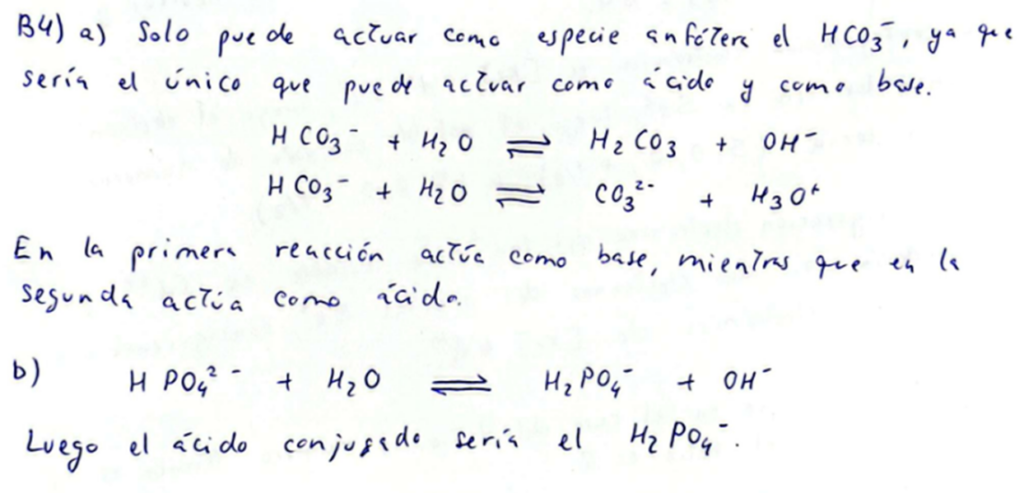 B4) a) Solo puede actuar como especie anfótera el HCO₃⁻, ya que
sería el único que puede actuar como ácido y como base.
HCO₃⁻ + H₂O ⇌ H₂CO₃ + OH⁻
HCO₃⁻ + H₂O ⇌ CO₃²⁻ + H₃O⁺
En la primera reacción actúa como base, mientras que en la
segunda actúa como ácido.
b) HPO₄²⁻ + H₂O ⇌ H₂PO₄⁻ + OH⁻
Luego el ácido conjugado sería el H₂PO₄⁻.